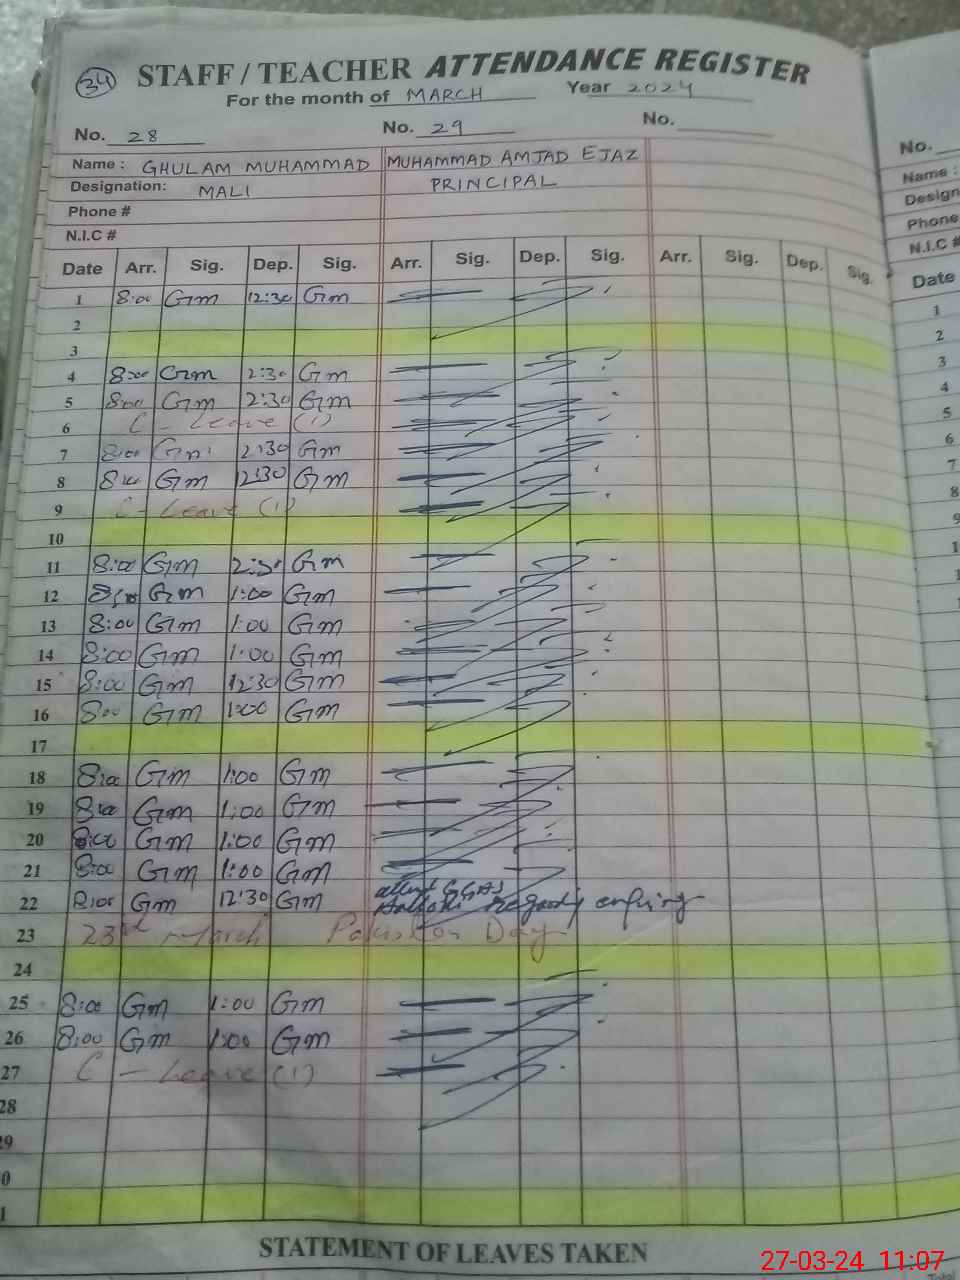 34
STAFF / TEACHER ATTENDANCE REGISTER
For the month of MARCH Year 2024
No. 28 No. 29 No.
Name : GHULAM MUHAMMAD MUHAMMAD AMJAD EJAZ
Designation: MALI PRINCIPAL
Phone #
N.I.C #
Date Arr. Sig. Dep. Sig. Arr. Sig. Dep. Sig. Arr. Sig. Dep. Sig.
1 8:00 Gm 12:30 Gm
2
3
4 8:00 Gm 2:30 Gm
5 8:00 Gm 2:30 Gm
6 C - Leave (1)
7 8:00 Gm 2:30 Gm
8 8:00 Gm 12:30 Gm
9 C - Leave (1)
10
11 8:00 Gm 2:30 Gm
12 Gm 1:00 Gm
13 8:00 Gm 1:00 Gm
14 8:00 Gm 1:00 Gm
15 8:00 Gm 12:30 Gm
16 8:00 Gm 1:00 Gm
17
18 8:00 Gm 1:00 Gm
19 8:00 Gm 1:00 Gm
20 8:00 Gm 1:00 Gm
21 8:00 Gm 1:00 Gm
22 8:00 Gm 12:30 Gm attend
23 23rd March Pakistan Day
24
25 8:00 Gm 1:00 Gm
26 8:00 Gm 1:00 Gm
27 C - Leave (1)
28
29
0
1
STATEMENT OF LEAVES TAKEN
No.
Name :
Design
Phone
N.I.C #
Date
1
2
3
4
5
6
7
8
9
27-03-24 11:07